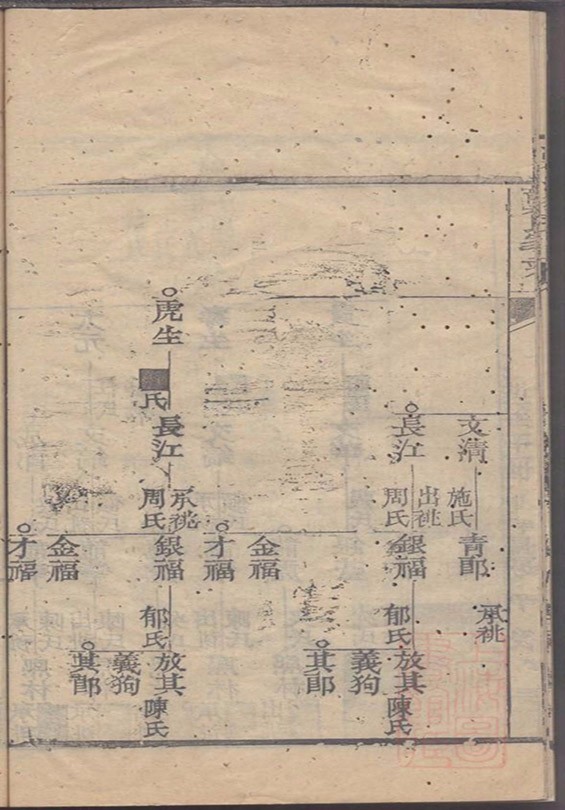 文清
施氏
青郎
承祧
長江
出祧
周氏
銀福
郁氏
放其
陳氏
義狗
其郎
金福
才福
虎生
氏
長江
承祧
周氏
銀福
郁氏
放其
陳氏
義狗
其郎
金福
才福